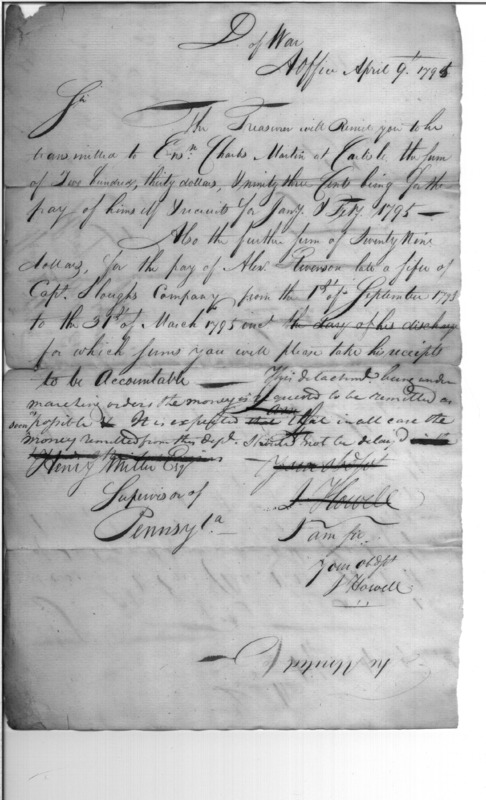 D of War
A Office April 9th. 1795
Sir
The Treasurer will Remit you to be
transmitted to Ensn. Charles Martin at Carlisle the sum
of Two hundred, thirty dollars, & ninety three Cents being for the
pay of himself & recruits for Jany. & Feby. 1795 —
Also the further sum of Twenty Nine
dollars, for the pay of Alexr. late a fifer of
Capt. Sloughs Company from the 1st of September
to the 31st of March 1795 the day of his discharge
for which sums you will please take his receipts
to be Accountable — This detachmt. being under
marching orders the money is requested to be remitted as
soon as possible It is expected that in all case the
money remitted from this dept. should not be delay'd
Henry Miller Esqr
Supervisor of
Pennsyla.
Your obdst
J Howell
I am Sir
Your obdst
J Howell